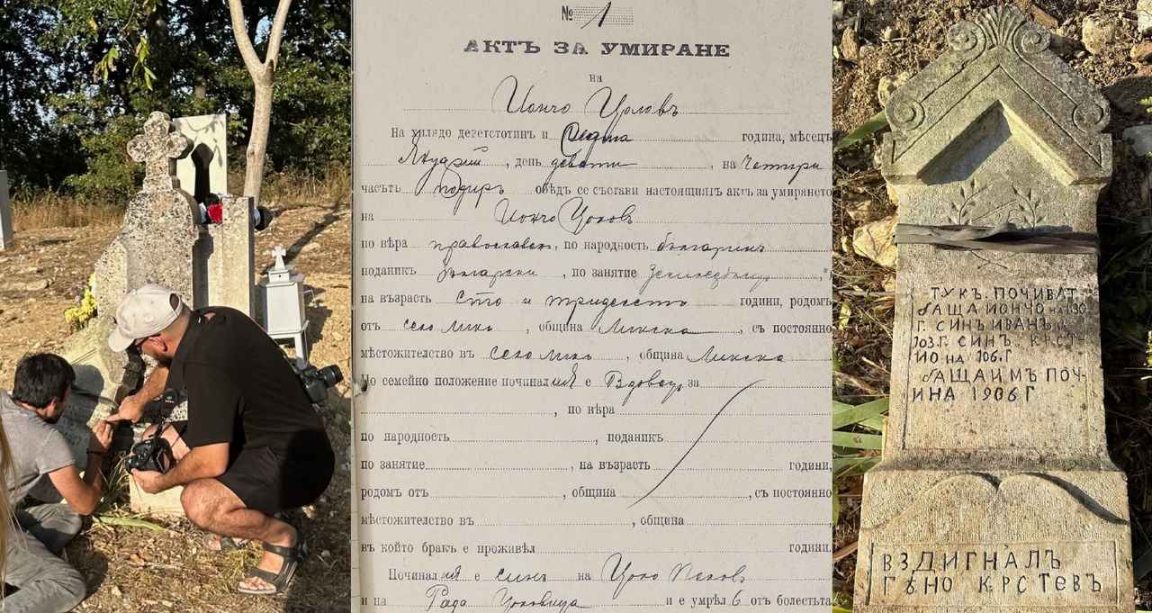 № 1
АКТЪ ЗА УМИРАНЕ
на
Йончо Урловъ
На хилядо деветстотин и седма година, мѣсецъ
Януарий, день девети, на четири
часътъ подиръ обѣдъ се състави настоящиятъ актъ за умирането
на Йончо Цоловъ
по вѣра православенъ, по народность българинъ
поданикъ Български, по занятие Земледѣлецъ,
на възрасть сто и тридесеть години, родомъ
отъ село Лико, община Ликска, съ постоянно
мѣстожителство въ село Лико, община Ликска
По семейно положение починалия е Вдовецъ за
, по вѣра
по народность, поданикъ
по занятие, на възрасть години,
родомъ отъ, община, съ постоянно
мѣстожителство въ, община
въ който бракъ е проживѣл години.
Починалия е синъ на Цоло
и на Рада и е умрѣлъ отъ болѣстьта
ТУКЪ ПОЧИВАТ
БАЩА ЙОНЧО НА 130
Г. СИНЪ ИВАНЪ
103 Г. СИНЪ КРСТ
ИО НА 106. Г
БАЩА ИМЪ ПОЧ
ИНА 1906 Г
ВЗДИГНАЛЪ
ГѢНО КРСТЕВЪ